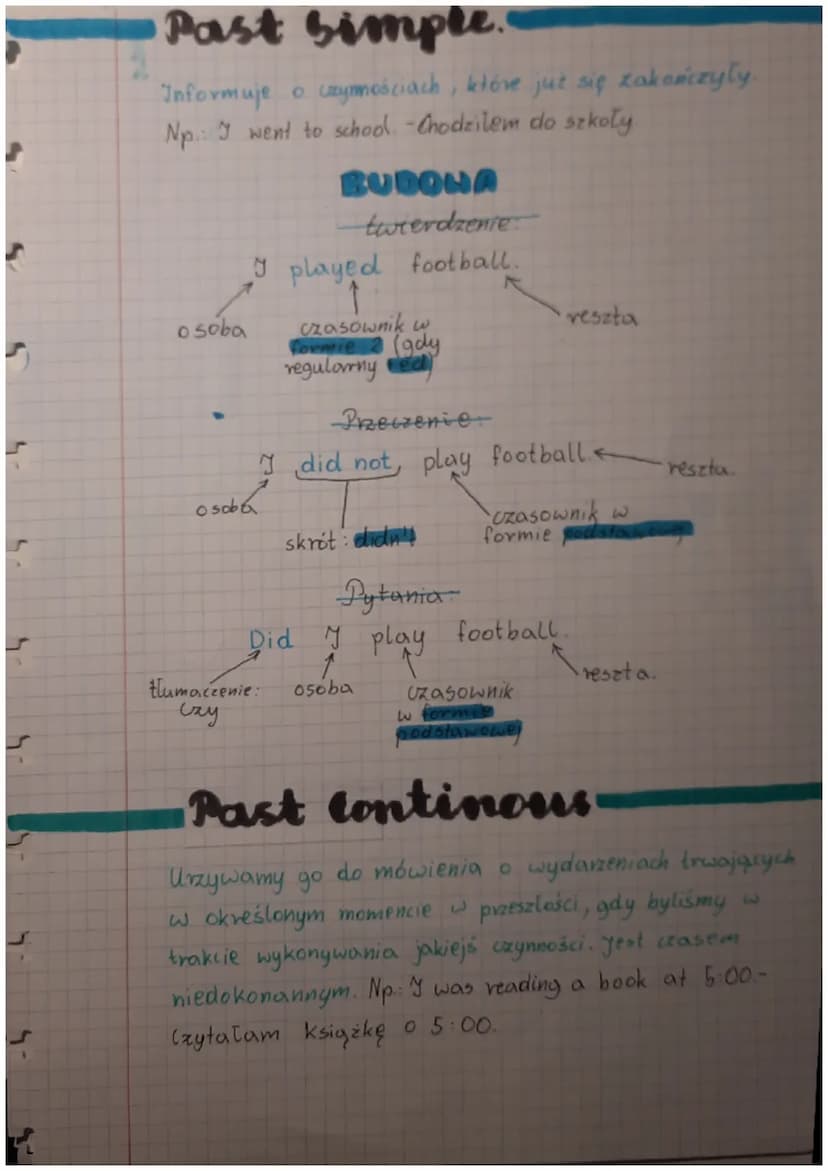 Past Simple.
Informuje o czynnościach, które już się zakończyły.
Np.: I went to school. - Chodziłem do szkoły
BUDOWA
twierdzenie:
I played football.
osoba czasownik w reszta
formie 2 (gdy
regularny ed)
Przeczenie:
I did not play football. reszta.
osoba czasownik w
skrót: didn't formie podstawowej
Pytania:
Did I play football.
tłumaczenie: osoba czasownik reszta.
Czy w formie
podstawowej
Past Continous
Urzywamy go do mówienia o wydarzeniach trwających
w określonym momencie w przeszłości, gdy byliśmy w
trakcie wykonywania jakiejś czynności. Jest czasem
niedokonannym. Np.: I was reading a book at 5:00.-
Czytałam książkę o 5:00.